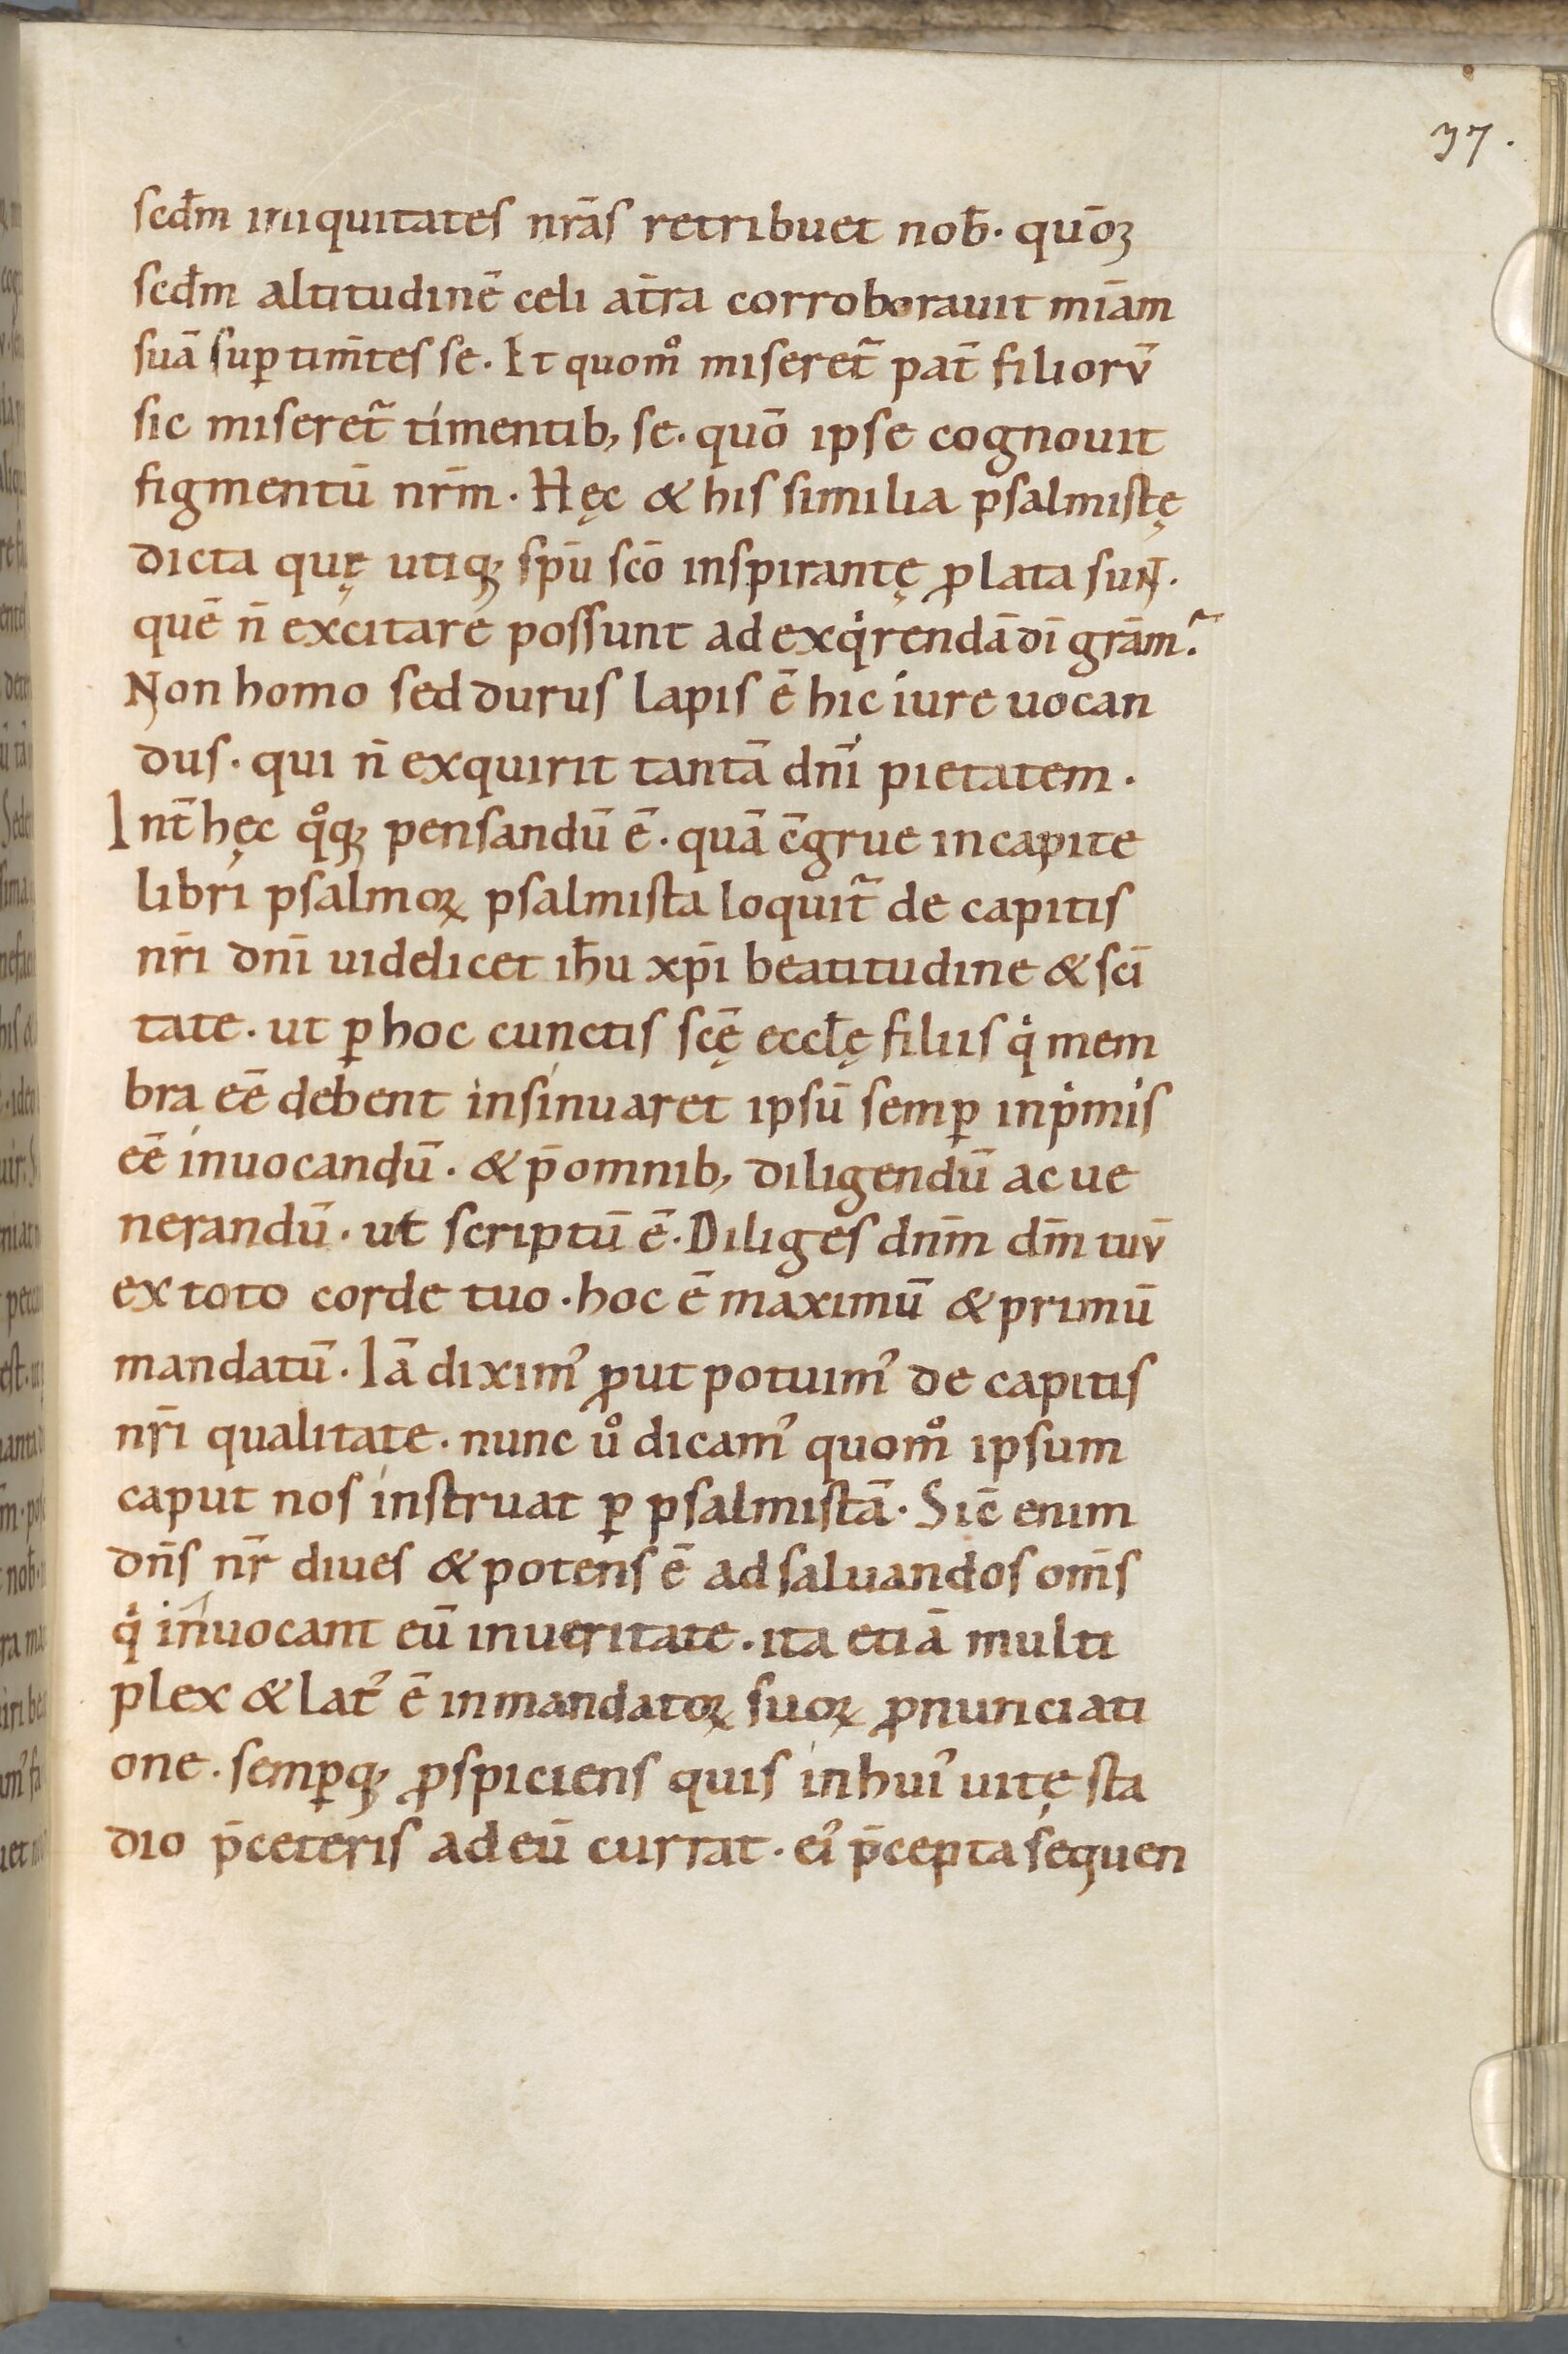 37.
scđm iniquitates nr̄as retribuet nob̄. quō⁊
scđm altitudinē celi at̄ra corroborauit mīam
suā suꝑ tim̄tes se. Et quom̊ miseret᷑ pat̄ filiorū
sic miseret᷑ timentib; se. quō ipse cognouit
figmentū nr̄m. Hęc & his similia psalmistę
dicta quę utiq; sp̄u sc̄o inspirantę ꝓlata sunt.
quē n̄ excitare possunt ad exq̇rendā dī gr̄am?
Non homo sed durus lapis ē hic iure uocan
dus. qui n̄ exquirit tantā dnī pietatem.
Int̄ hęc q̊q; pensandū ē. quā c̄grue in capite
libri psalmoꝝ psalmista loquit᷑ de capitis
nr̄i dn̄i uidelicet ih̄u xp̄i beatitudine & sc̄i
tate. ut ꝑ hoc cunctis sc̄ę eccl̄ę filiis q̇ mem
bra eē debent insinuaret ipsū semꝑ inṗmis
eē inuocandū. & p̄ omnib; diligendū ac ue
nerandū. ut scriptū ē. Diliges dn̄m dm̄ tuū
ex toto corde tuo. hoc ē maximū & primū
mandatū. Iā diximꝰ ꝓut potuimꝰ de capitis
nr̄i qualitate. nunc ů dicamꝰ quom̊ ipsum
caput nos instruat ꝑ psalmistā. Sic̄ enim
dn̄s nr̄ diues & potens ē ad saluandos om̄s
q̇ inuocant eū in ueritate. ita etiā multi
plex & latꝰ ē in mandatoꝝ suoꝝ ꝓnunciati
one. semꝑq; ꝓspiciens quis in huiꝰ uitę sta
dio p̄ceteris ad eū currat. eiꝰ p̄cepta sequen